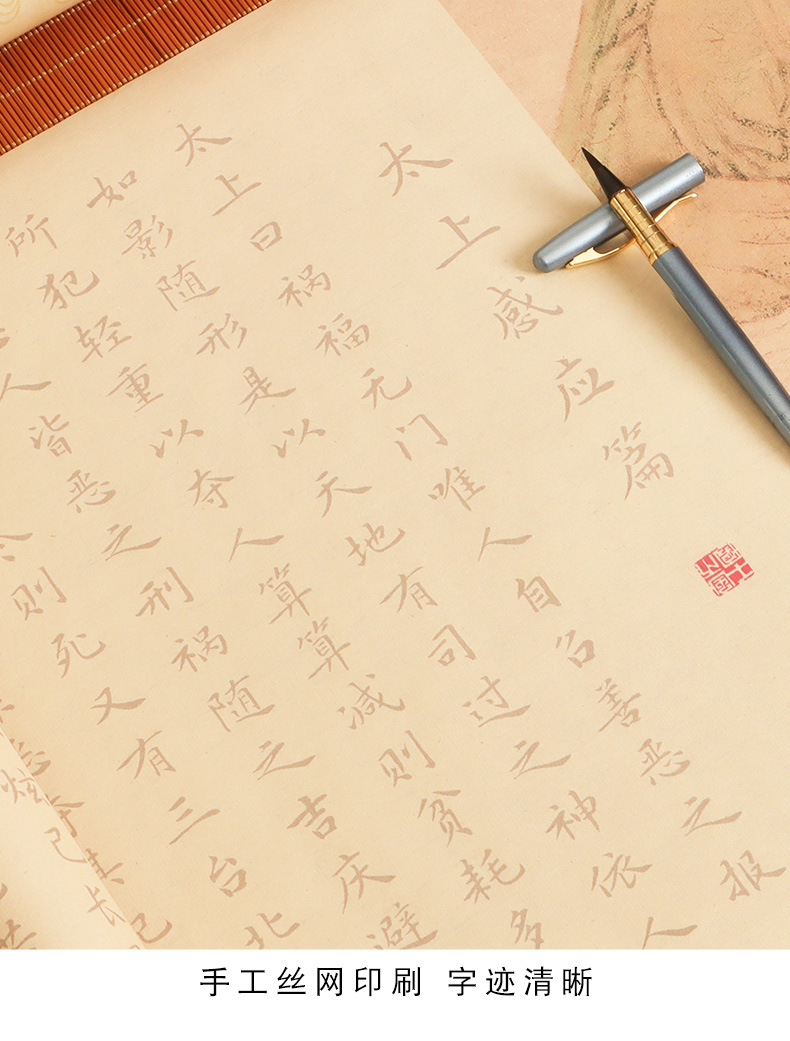 太上感应篇
太上曰祸福无门唯人自召善恶之报
如影随形是以天地有司过之神依人
所犯轻重以夺人算算减则贫耗多
人皆恶之刑祸随之吉庆避
则死又有三台北
炫己长
手工丝网印刷 字迹清晰